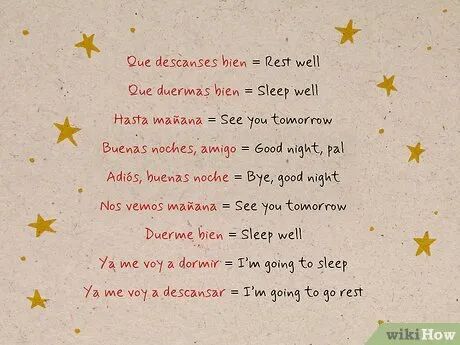 Que descanses bien = Rest well
Que duermas bien = Sleep well
Hasta mañana = See you tomorrow
Buenas noches, amigo = Good night, pal
Adiós, buenas noche = Bye, good night
Nos vemos mañana = See you tomorrow
Duerme bien = Sleep well
Ya me voy a dormir = I'm going to sleep
Ya me voy a descansar = I'm going to go rest
wikiHow